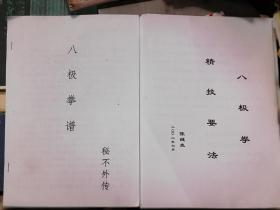 八极拳谱
秘不外传
八极拳
精技要法